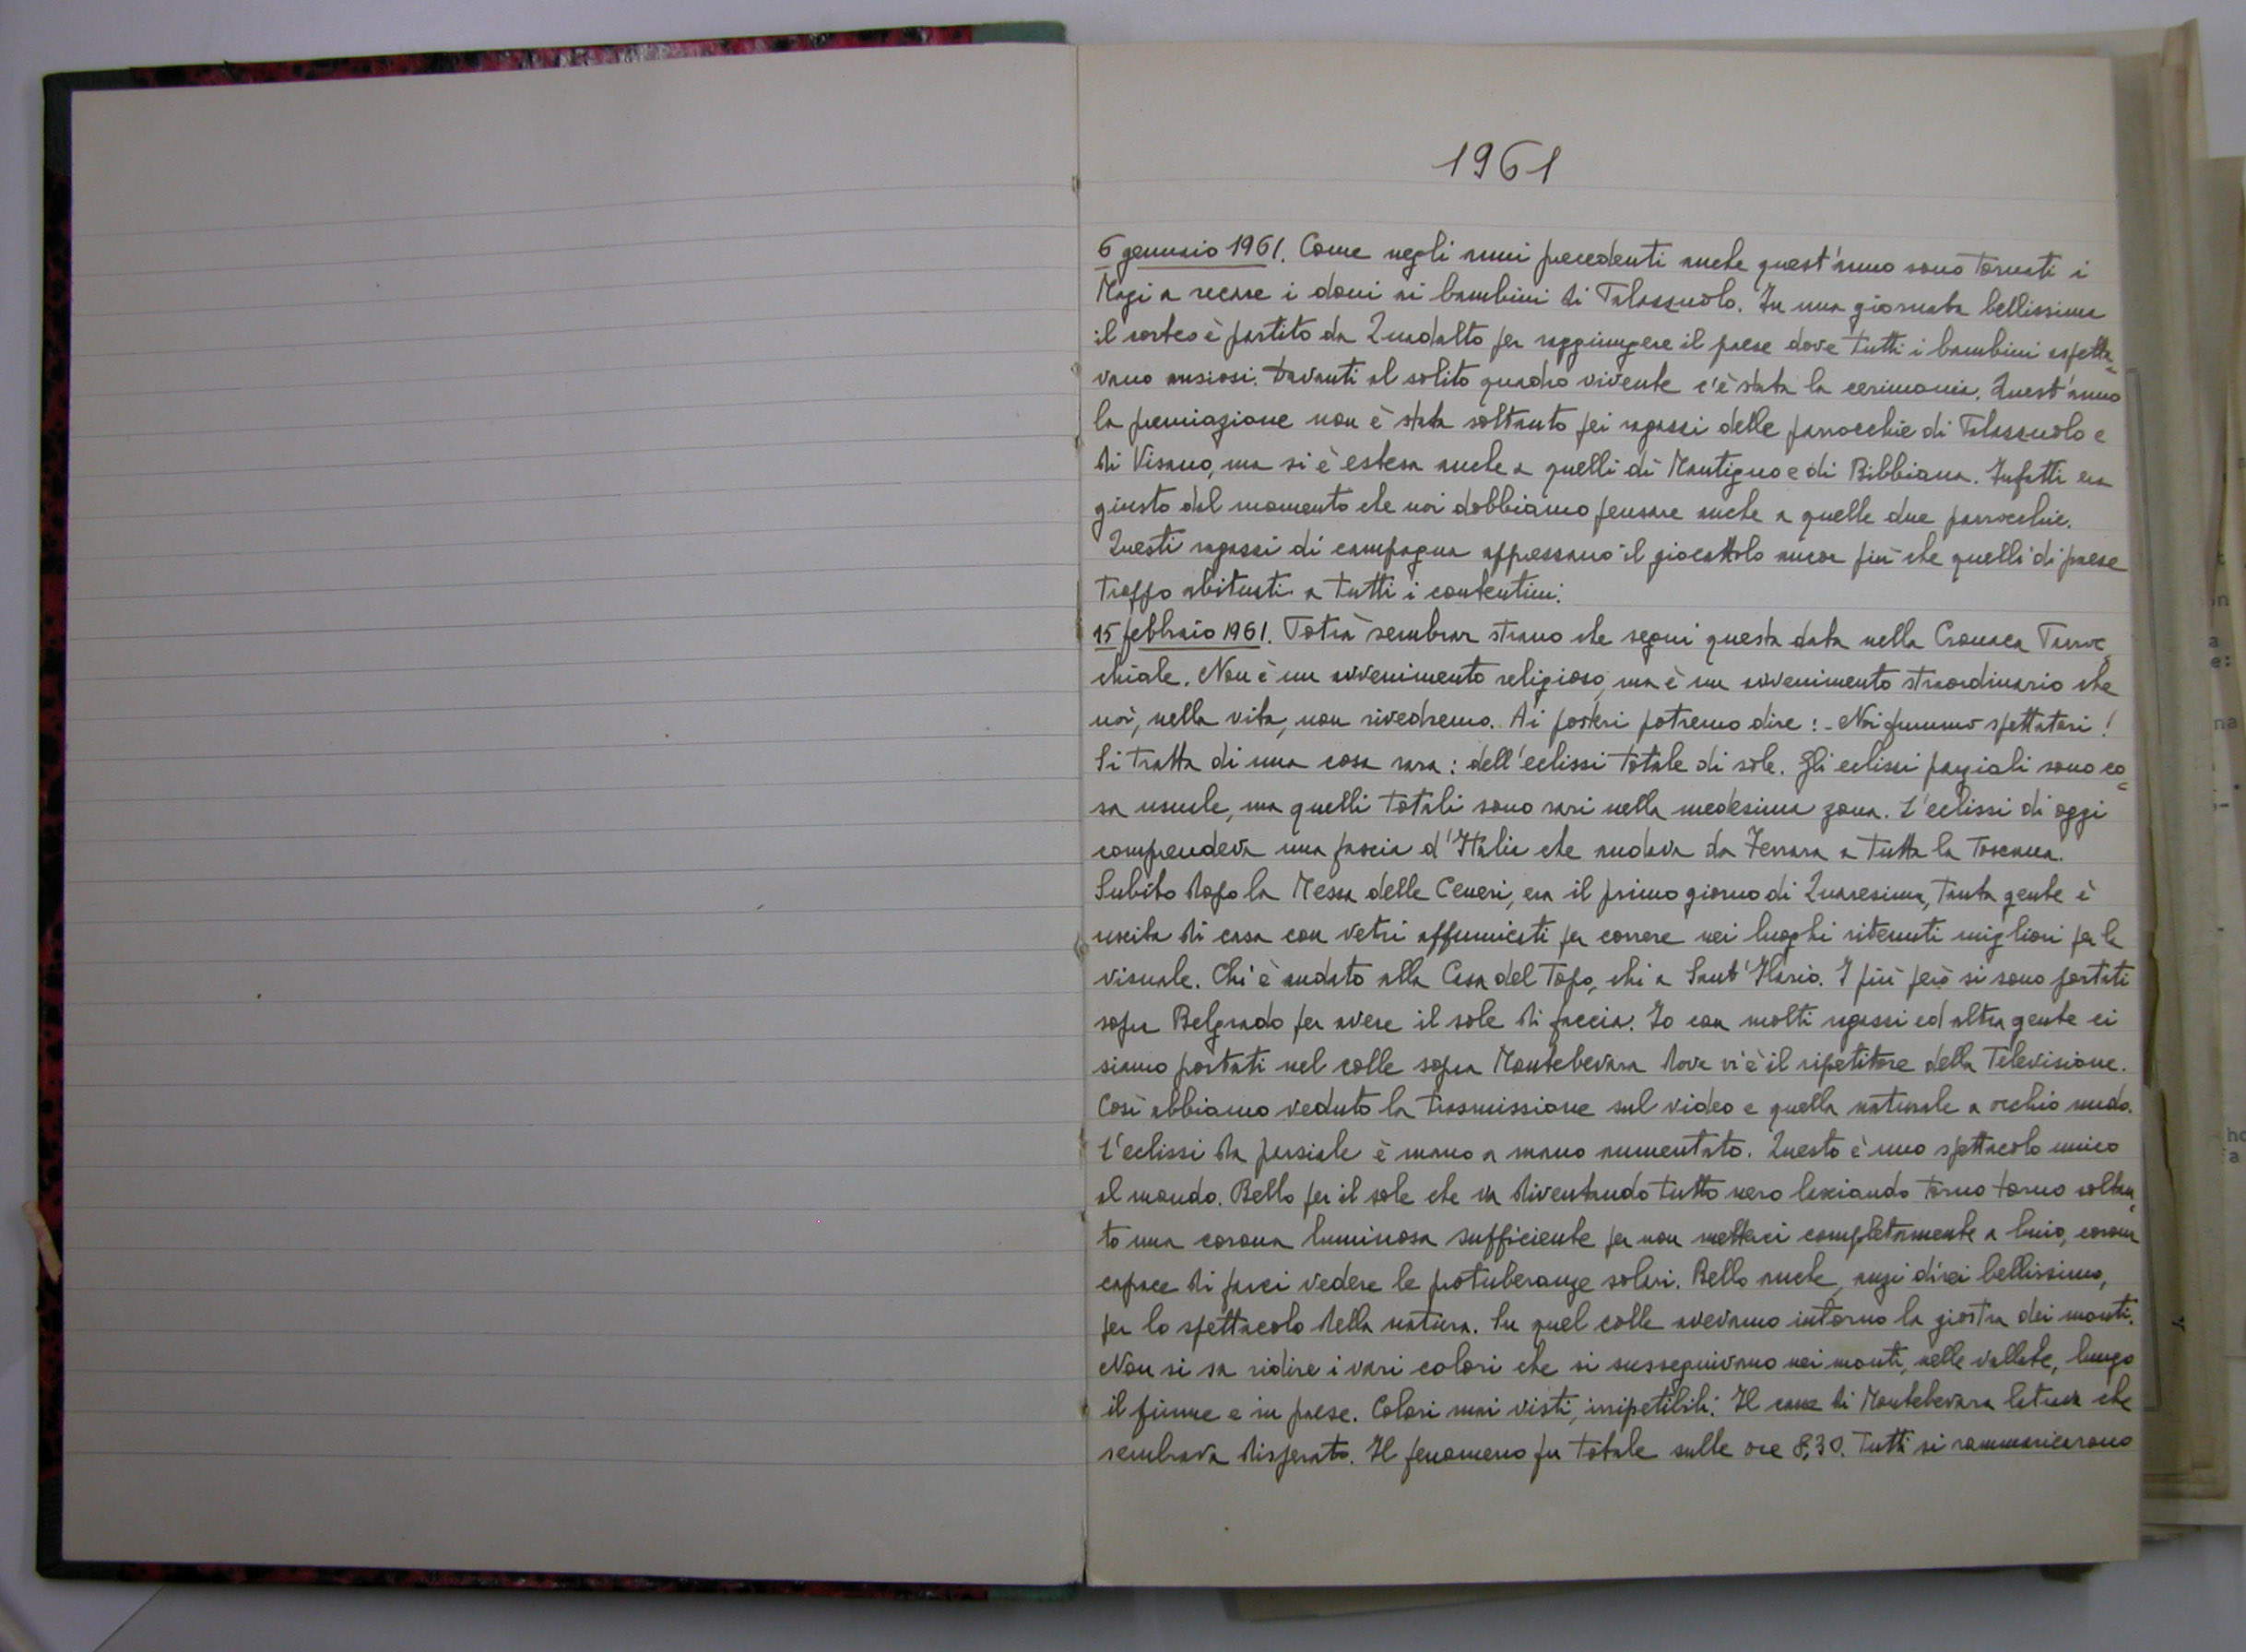 1961
6 gennaio 1961. Come negli anni precedenti anche quest'anno sono tornati i
Magi a recare i doni ai bambini di Palazzuolo. In una giornata bellissima
il corteo è partito da Quadalto per raggiungere il paese dove tutti i bambini aspetta=
vano ansiosi. Davanti al solito quadro vivente c'è stata la cerimonia. Quest'anno
la premiazione non è stata soltanto pei ragazzi delle parrocchie di Palazzuolo e
di Visano, ma si è estesa anche a quelli di Mantigno e di Bibbiana. Infatti era
giusto dal momento che noi dobbiamo pensare anche a quelle due parrocchie.
Questi ragazzi di campagna apprezzano il giocattolo ancor più che quelli di paese
troppo abituati a tutti i contentini.
15 febbraio 1961. Potrà sembrar strano che segni questa data nella Cronaca Parroc=
chiale. Non è un avvenimento religioso, ma è un avvenimento straordinario che
noi, nella vita, non rivedremo. Ai posteri potremo dire: - Noi fummo spettatori!
Si tratta di una cosa rara: dell'eclissi totale di sole. Gli eclissi parziali sono co=
sa usuale, ma quelli totali sono rari nella medesima zona. L'eclissi di oggi
comprendeva una fascia d'Italia che andava da Ferrara a tutta la Toscana.
Subito dopo la Messa delle Ceneri, era il primo giorno di Quaresima, tanta gente è
uscita di casa con vetri affumicati per correre nei luoghi ritenuti migliori per la
visuale. Chi è andato alla Casa del Topo, chi a Sant'Ilario. I più però si sono portati
sopra Belgrado per avere il sole di faccia. Io con molti ragazzi ed altra gente ci
siamo portati nel colle sopra Montebevara dove v'è il ripetitore della Televisione.
Così abbiamo veduto la trasmissione sul video e quella naturale a occhio nudo.
L'eclissi da parziale è mano a mano aumentato. Questo è uno spettacolo unico
al mondo. Bello per il sole che va diventando tutto nero lasciando torno torno soltan=
to una corona luminosa sufficiente per non metterci completamente a buio, corona
capace di farci vedere le protuberanze solari. Bello anche, anzi direi bellissimo,
per lo spettacolo della natura. Su quel colle avevamo intorno la giostra dei monti.
Non si sa ridire i vari colori che si susseguivano nei monti, nelle vallate, lungo
il fiume e in paese. Colori mai visti, irripetibili. Il cane di Montebevara latrava che
sembrava disperato. Il fenomeno fu totale sulle ore 8,30. Tutti si rammaricarono